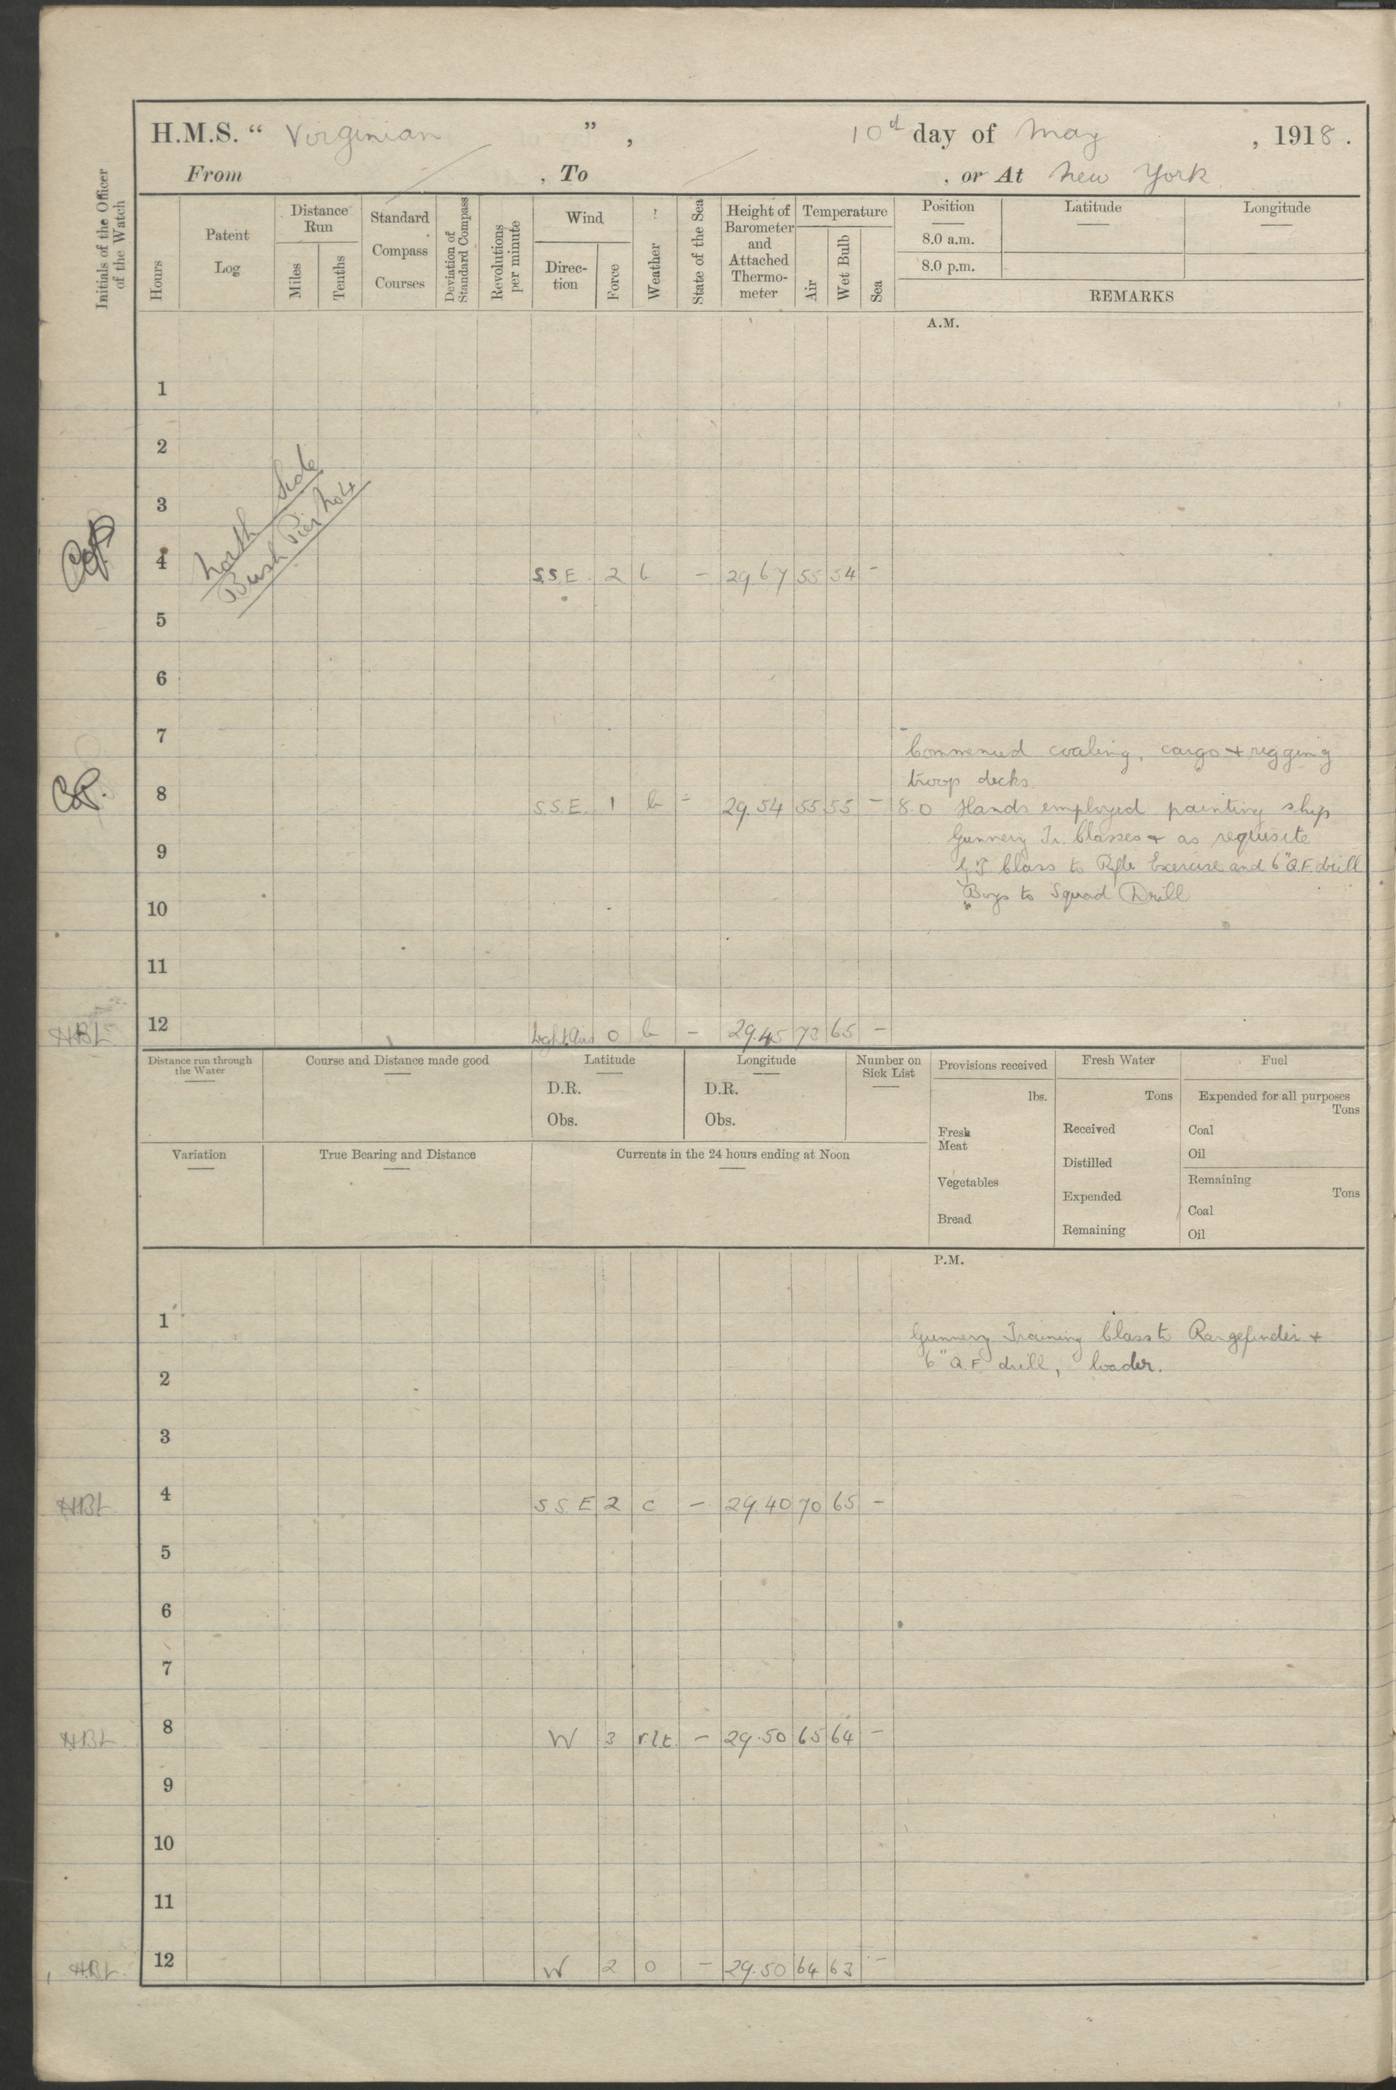 H.M.S. “ Virginian ” , 10th day of May , 1918 .
From , To , or At New York
Initials of the Officer of the Watch
Hours
Patent Log
Distance Run
Miles
Tenths
Standard Compass Courses
Deviation of Standard Compass
Revolutions per minute
Wind
Direc-tion
Force
Weather
State of the Sea
Height of Barometer and Attached Thermo-meter
Temperature
Air
Wet Bulb
Sea
Position Latitude Longitude
8.0 a.m.
8.0 p.m.
REMARKS
A.M.
1
2
3
North Side
Bush Pier No 4
4 S.S.E. 2 b - 29.67 55 54 -
5
6
7
Commenced coaling, cargo & rigging
troop decks
8 S.S.E. 1 b = 29.54 55 55 - 8.0 Hands employed painting ship
Gunnery Tr. Classes & as requisite
9
G.T Class to Rifle Exercise and 6" Q.F. drill
Boys to Squad Drill
10
11
HBL 12 Light Airs 0 b - 29.45 72 65 -
Distance run through the Water
Course and Distance made good
Latitude
D.R.
Obs.
Longitude
D.R.
Obs.
Number on Sick List
Provisions received
lbs.
Fresh Meat
Vegetables
Bread
Fresh Water
Tons
Received
Distilled
Expended
Remaining
Fuel
Expended for all purposes
Tons
Coal
Oil
Remaining
Tons
Coal
Oil
Variation
True Bearing and Distance
Currents in the 24 hours ending at Noon
P.M.
1
Gunnery Training Class to Rangefinder &
6" Q.F. drill, loader.
2
3
HBL 4 S.S.E 2 c - 29.40 70 65 -
5
6
7
HBL 8 W 3 rlt - 29.50 65 64 -
9
10
11
HBL 12 W 2 o - 29.50 64 63 -